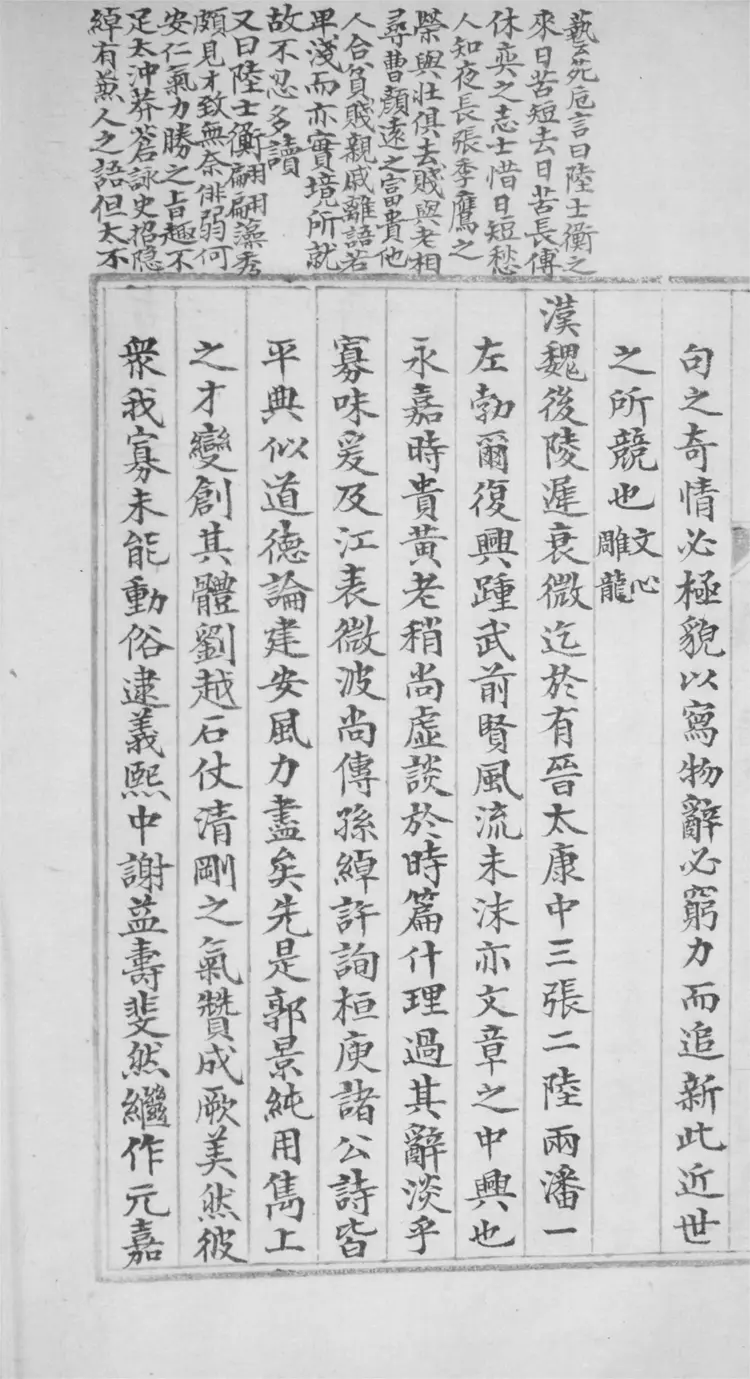 藝苑巵言曰陸士衡之
來日苦短去日苦長傅
休奕之志士惜日短愁
人知夜長張季鷹之
榮與壯俱去賤與老相
尋曹顏遠之富貴他
人合貧賤親戚離語若
卑淺而亦實境所就
故不忍多讀
又曰陸士衡翩翩藻秀
頗見才致無奈俳弱何
安仁氣力勝之旨趣不
足太沖莽蒼詠史招隱
綽有兼人之語但太不
句之奇情必極貌以寫物辭必窮力而追新此近世
之所競也文心雕龍
漢魏後陵遲衰微迄於有晉太康中三張二陸兩潘一
左勃爾復興踵武前賢風流未沫亦文章之中興也
永嘉時貴黃老稍尚虛談於時篇什理過其辭淡乎
寡味爰及江表微波尚傳孫綽許詢桓庾諸公詩皆
平典似道德論建安風力盡矣先是郭景純用雋上
之才變創其體劉越石仗清剛之氣贊成厥美然彼
衆我寡未能動俗逮義熙中謝益壽斐然繼作元嘉